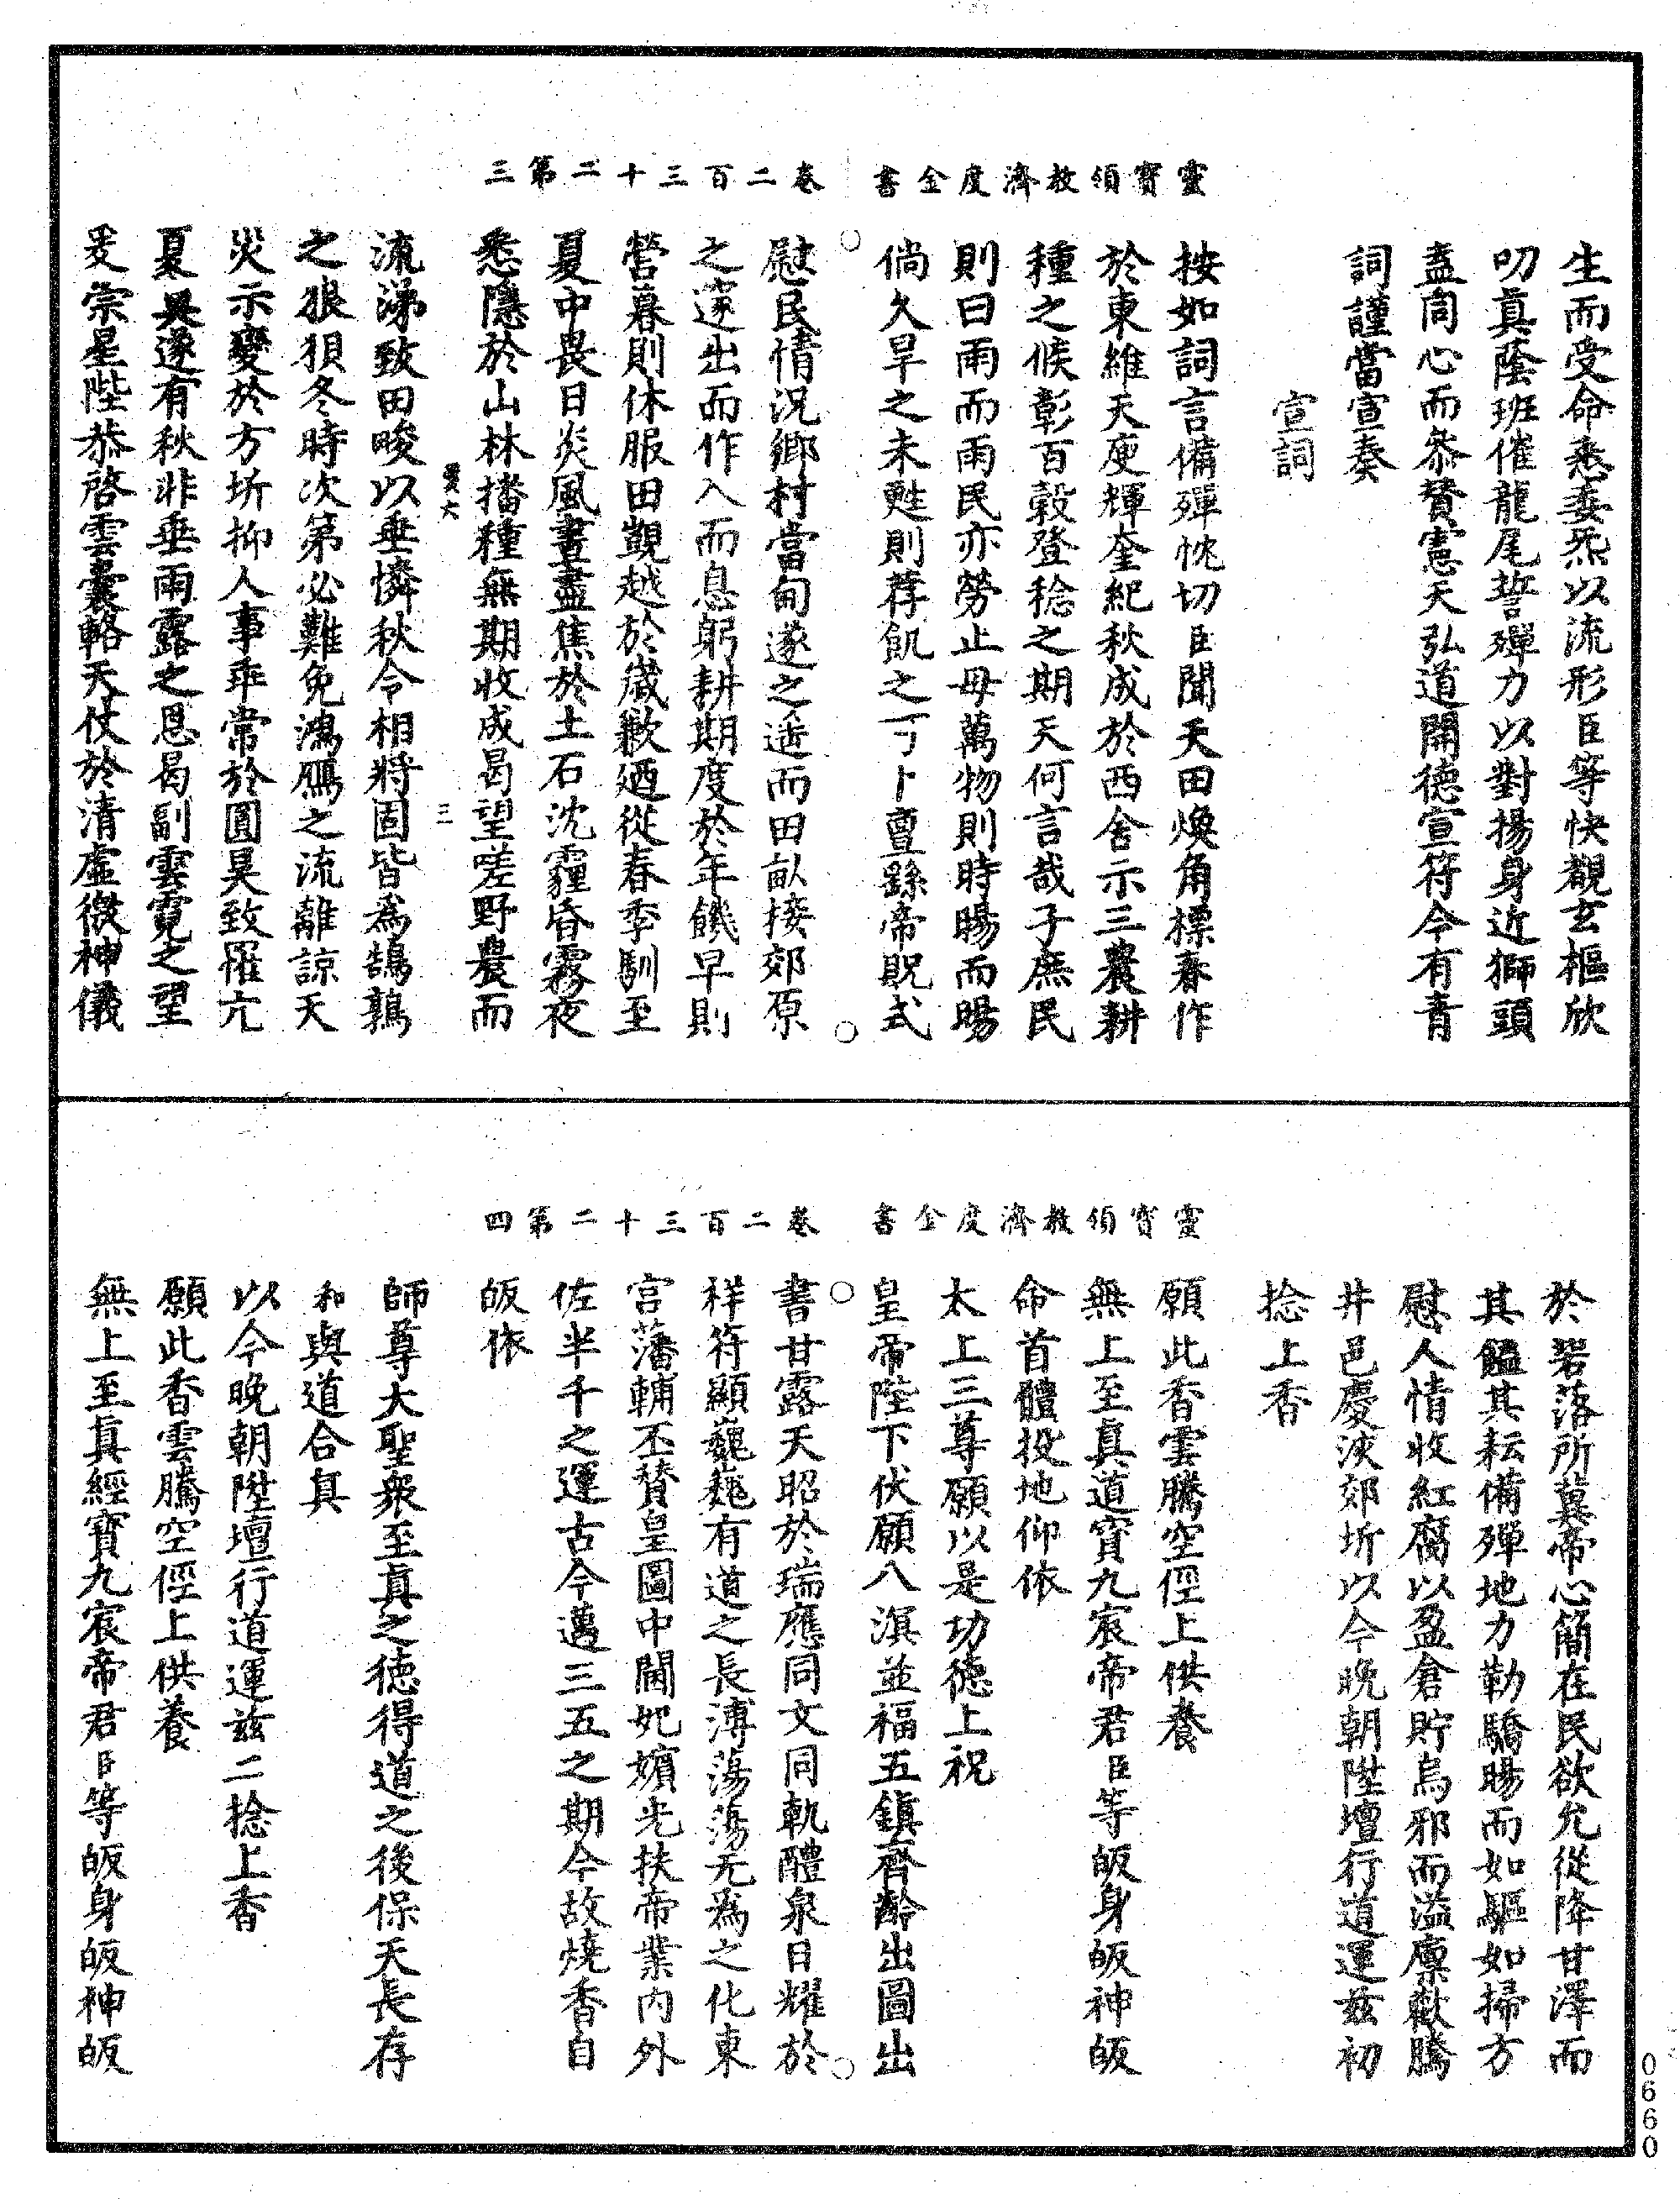 靈寶領教濟度金書　卷二百三十二第三
生而受命悉委炁以流形臣等快覩玄樞欣
叨真蔭班催龍尾誓殫力以對揚身近獅頭
盍同心而叅贊憲天弘道開德宣符今有青
詞謹當宣奏
宣詞
按如詞言備殫忱切臣聞天田煥角標春作
於東維天庾輝奎紀秋成於西舍示三農耕
種之候彰百穀登稔之期天何言哉子庶民
則曰雨而雨民亦勞止毋萬物則時暘而暘
倘久旱之未甦則荐飢之可卜亶繇帝貺式
慰民情況鄉村當甸遂之遥而田畝接郊原
之邃出而作入而息躬耕期度於年饑早則
營暮則休服田覬越於歲歉廼從春季馴至
夏中畏日炎風晝盡焦於土石沈霾昏霧夜
悉隱於山林播種無期收成曷望嗟野農而
流涕致田畯以垂憐秋令相將固皆為鵠鶉
之狼狽冬時次第必難免鴻鴈之流離諒天
災示變於方圻抑人事乖常於圓昊致罹亢
夏𠔃遂有秋非垂雨露之恩曷副雲霓之望
爰宗星陛恭啓雲囊輅天仗於清虛徼神儀
靈寶領教濟度金書　卷二百三十二第四
於碧落所冀帝心簡在民欲允從降甘澤而
其饁其耘備殫地力勒驕暘而如驅如掃方
慰人情收紅腐以盈倉貯烏邪而溢廩歡騰
井邑慶浹郊圻以今晚朝陞壇行道運兹初
捻上香
願此香雲騰空俓上供養
無上至真道寶九宸帝君臣等皈身皈神皈
命首體投地仰依
太上三尊願以是功德上祝
皇帝陛下伏願八溟並福五鎮齊齡出圖出
書甘露天昭於瑞應同文同軌醴泉日耀於
祥符顯巍巍有道之長溥蕩蕩无為之化東
宮藩輔丕賛皇圖中闈妃嬪光扶帝業内外
佐半千之運古今邁三五之期今故燒香自
皈依
師尊大聖衆至真之德得道之後保天長存
和與道合真
以今晚朝陞壇行道運兹二捻上香
願此香雲騰空俓上供養
無上至真經寶九宸帝君臣等皈身皈神皈
0660